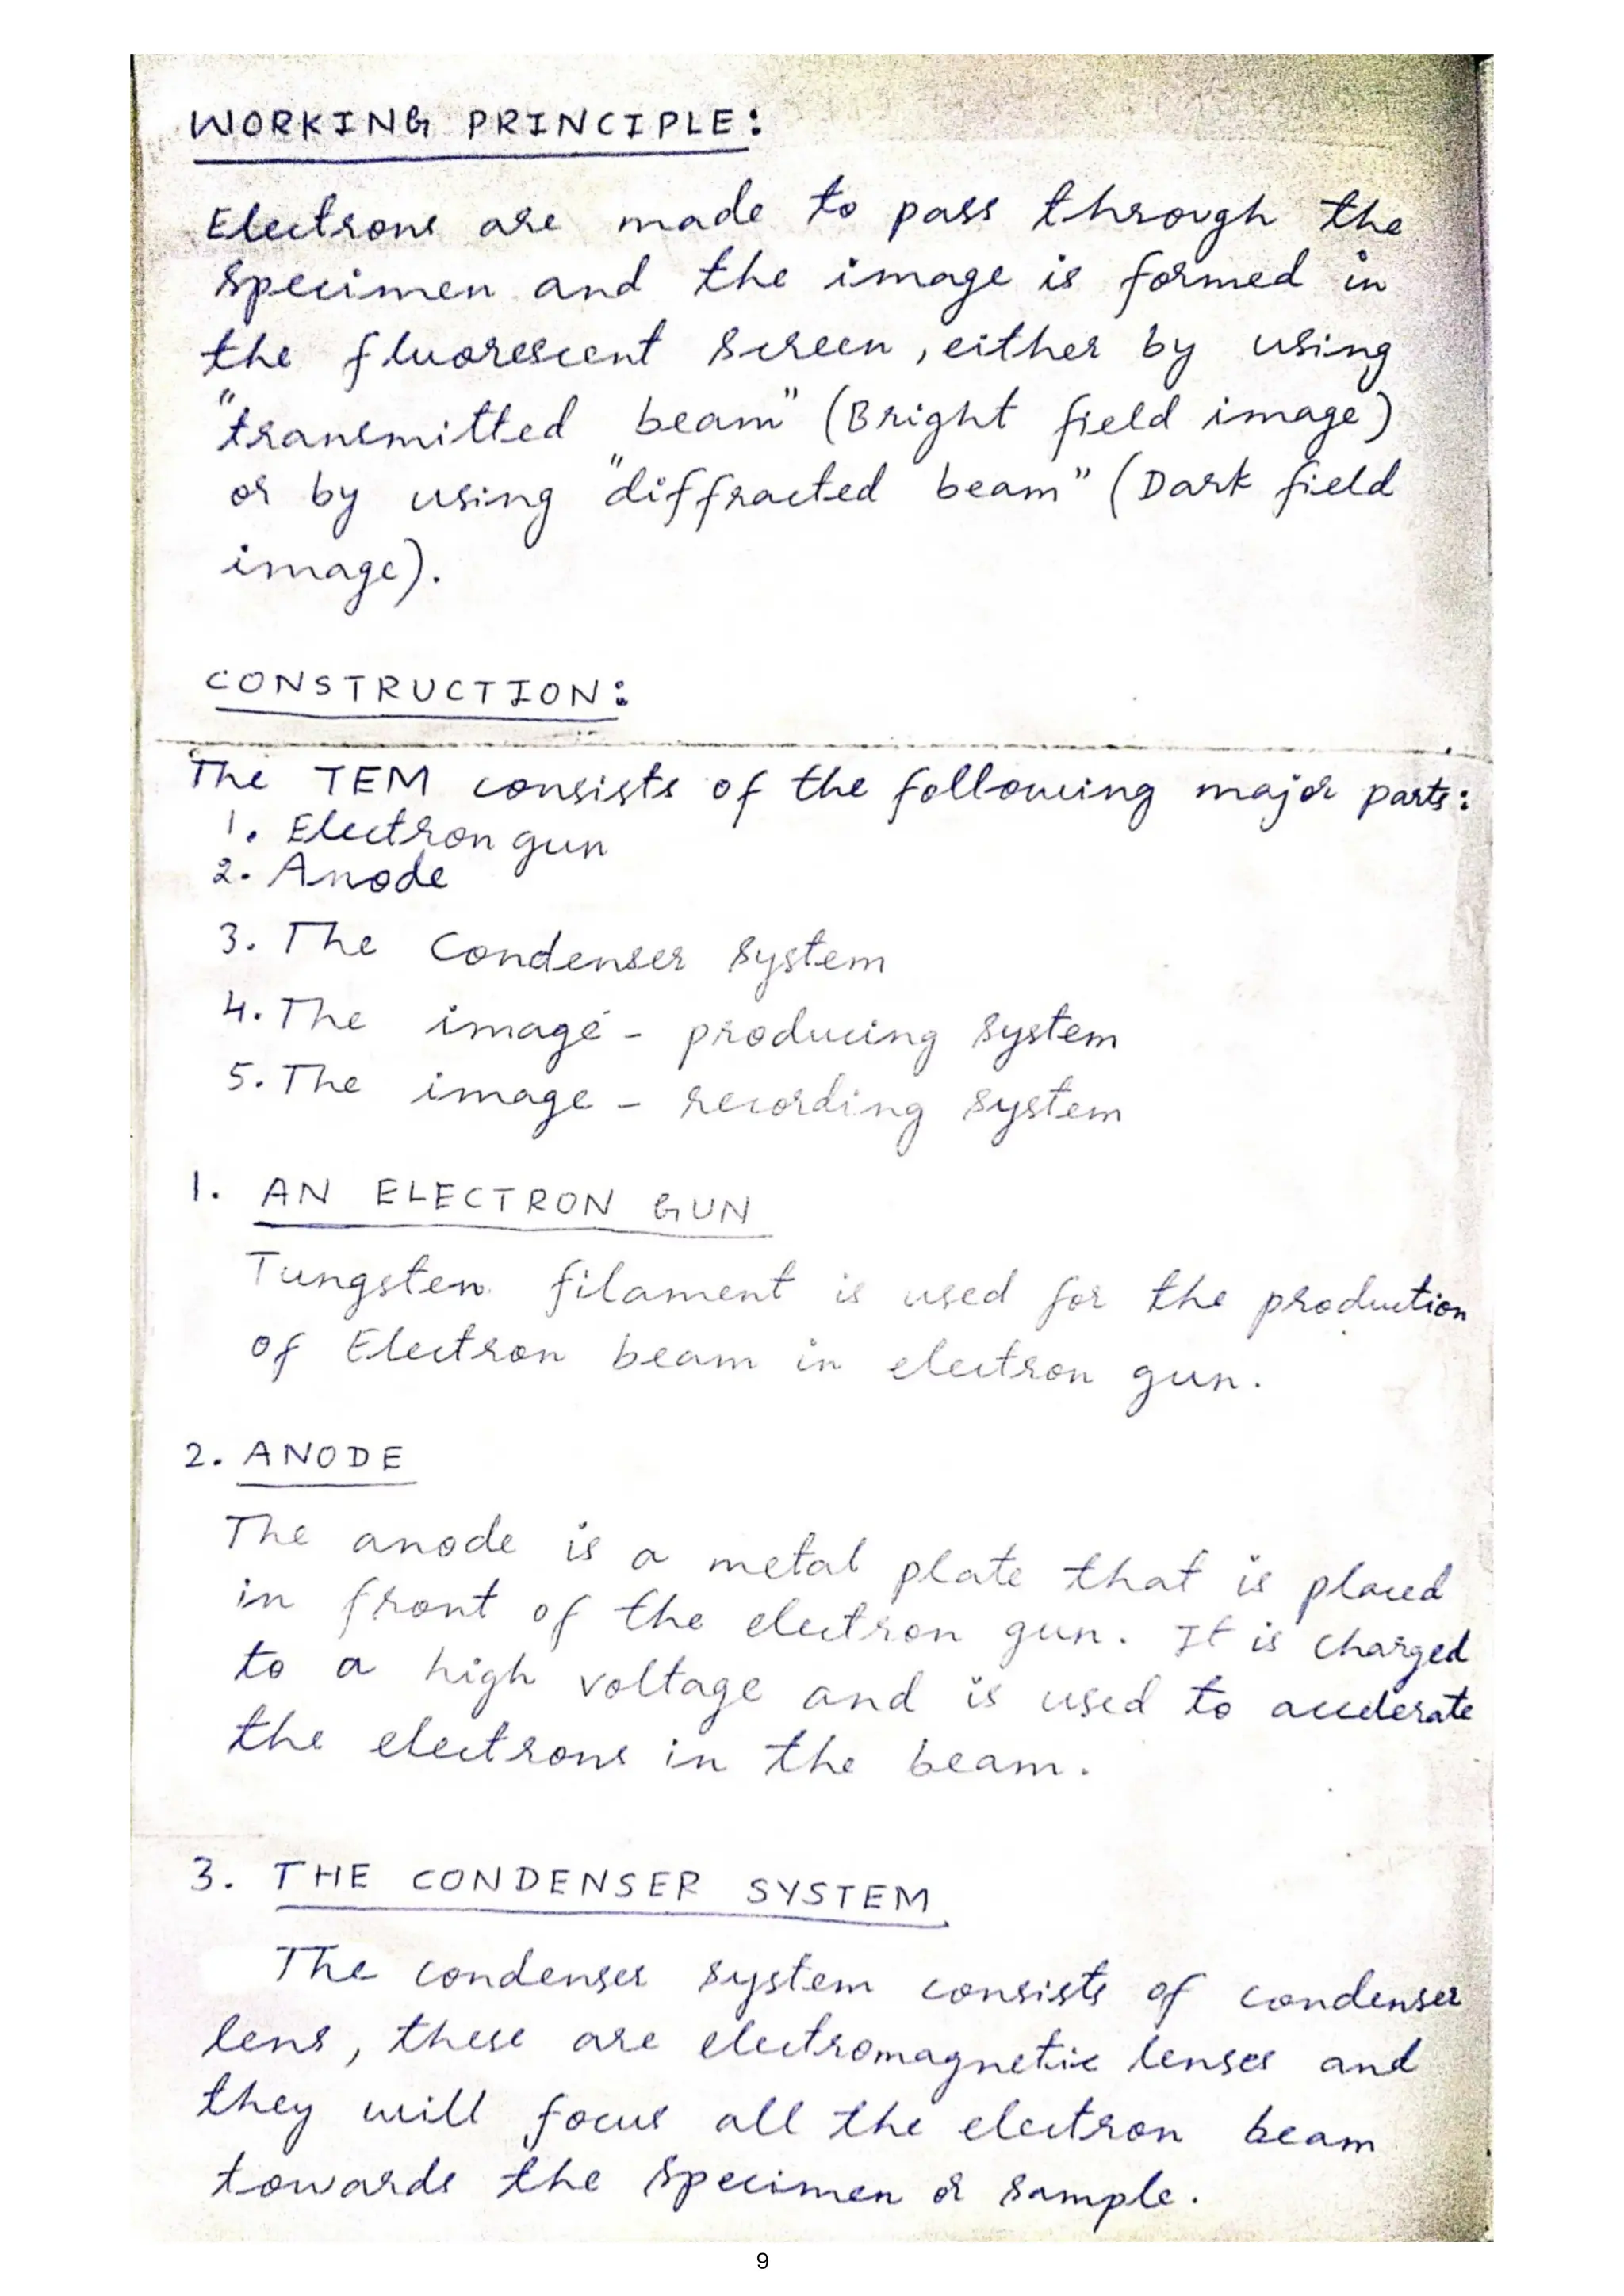 WORKING PRINCIPLE:
Electrons are made to pass through the
specimen and the image is formed in
the fluorescent screen, either by using
"transmitted beam" (Bright field image)
or by using "diffracted beam" (Dark field
image).
CONSTRUCTION:
The TEM consists of the following major parts:
1. Electron gun
2. Anode
3. The Condenser system
4. The image - producing system
5. The image - recording system
1. AN ELECTRON GUN
Tungsten filament is used for the production
of Electron beam in electron gun.
2. ANODE
The anode is a metal plate that is placed
in front of the electron gun. It is charged
to a high voltage and is used to accelerate
the electrons in the beam.
3. THE CONDENSER SYSTEM
The condenser system consists of condenser
lens, these are electromagnetic lenses and
they will focus all the electron beam
towards the specimen or sample.
9